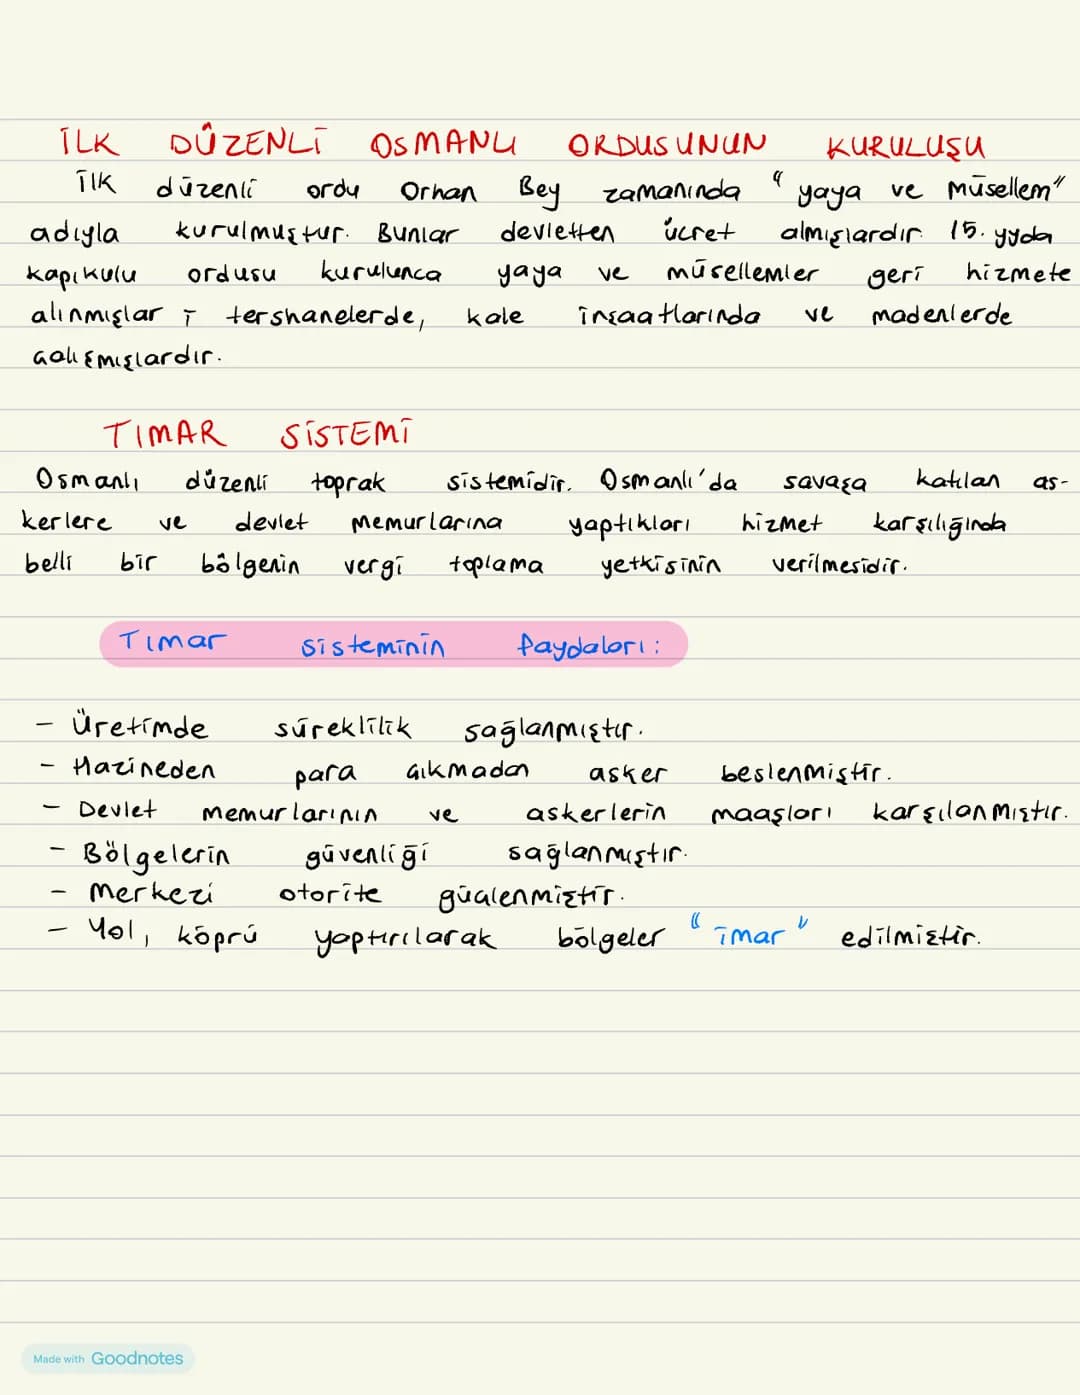 İLK DÜZENLİ OSMANLI ORDUSUNUN KURULUŞU
İlk düzenli ordu Orhan Bey zamanında "yaya ve müsellem"
adıyla kurulmuştur. Bunlar devletten ücret almışlardır. 15. yyda
kapıkulu ordusu kurulunca yaya ve müsellemler geri hizmete
alınmışlar; tershanelerde, kale inşaatlarında ve madenlerde
çalışmışlardır.
TIMAR SİSTEMİ
Osmanlı düzenli toprak sistemidir. Osmanlı'da savaşa katılan as-
kerlere ve devlet memurlarına yaptıkları hizmet karşılığında
belli bir bölgenin vergi toplama yetkisinin verilmesidir.
Tımar sisteminin faydaları:
- Üretimde süreklilik sağlanmıştır.
- Hazineden para çıkmadan asker beslenmiştir.
- Devlet memurlarının ve askerlerin maaşları karşılanmıştır.
- Bölgelerin güvenliği sağlanmıştır.
- Merkezi otorite güçlenmiştir.
- Yol, köprü yaptırılarak bölgeler "imar" edilmiştir.
Made with Goodnotes